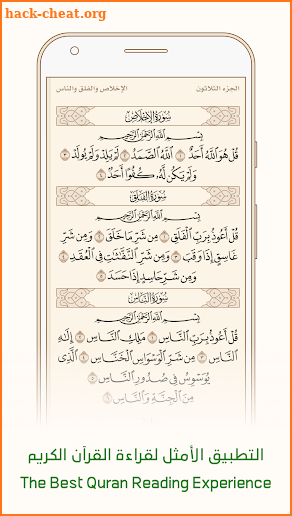 hack-cheat.org
الجزء الثلاثون
الإخلاص والفلق والناس
سُورَةُ الإِخْلَاصِ
بِسْمِ اللَّهِ الرَّحْمَٰنِ الرَّحِيمِ
قُلْ هُوَ اللَّهُ أَحَدٌ ١ اللَّهُ الصَّمَدُ ٢ لَمْ يَلِدْ وَلَمْ يُولَدْ ٣
وَلَمْ يَكُن لَّهُۥ كُفُوًا أَحَدٌ ٤
سُورَةُ الْفَلَقِ
بِسْمِ اللَّهِ الرَّحْمَٰنِ الرَّحِيمِ
قُلْ أَعُوذُ بِرَبِّ الْفَلَقِ ١ مِن شَرِّ مَا خَلَقَ ٢ وَمِن شَرِّ
غَاسِقٍ إِذَا وَقَبَ ٣ وَمِن شَرِّ النَّفَّٰثَٰتِ فِي الْعُقَدِ ٤
وَمِن شَرِّ حَاسِدٍ إِذَا حَسَدَ ٥
سُورَةُ النَّاسِ
بِسْمِ اللَّهِ الرَّحْمَٰنِ الرَّحِيمِ
قُلْ أَعُوذُ بِرَبِّ النَّاسِ ١ مَلِكِ النَّاسِ ٢ إِلَٰهِ
النَّاسِ ٣ مِن شَرِّ الْوَسْوَاسِ الْخَنَّاسِ ٤ الَّذِي
يُوَسْوِسُ فِي صُدُورِ النَّاسِ ٥
مِنَ الْجِنَّةِ وَالنَّاسِ ٦
التطبيق الأمثل لقراءة القرآن الكريم
The Best Quran Reading Experience